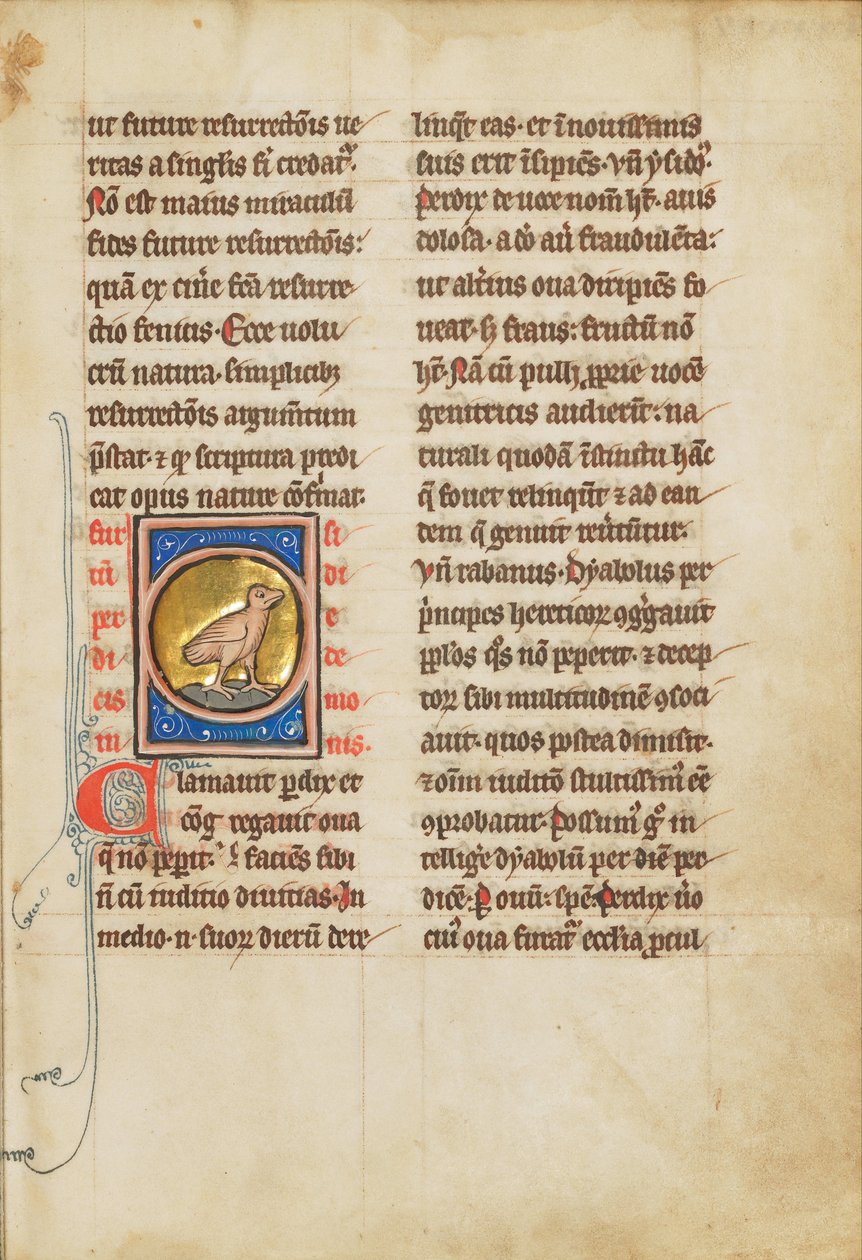 ut future resurrectõis ue
ritas a singl'is sı̃ credat᷑.
Nõ est maius miraculũ
fides future resurrectõis:
quã ex cin̾e fc̃a resurre
ctio fenicis. Ecce uolu
crũ natura. simplicibꝫ
resurrectõis argum̃tum
p̃stat. ⁊ qꝫ scriptura predi
cat opus nature cõfirmat.
fur si
tũ di
per e
di de
cis mo
in nis.
Clamauit ꝑdix et
cõg̃regauit oua
q̃ nõ peperit. faciẽs sibi
ñ cũ iuditio diuitias. In
medio .n. suoꝝ dierũ dere
linq̃t eas. et ĩ nouissimis
suis erit ĩsipiẽs. vñ ysidoꝰ.
Perdix de uoce nom̃ hꝫ̃. auis
dolosa. adeo aũ fraudulẽta:
ut alt̾ius oua diripiẽs fo
ueat. sꝫ fraus: fructũ nõ
hꝫ̃. Nã cũ pulli ꝓprie uocẽ
genitricis audierĩt: na
turali quodã ĩstinctu hãc
q̃ fouet relinqũt ⁊ ad ean
dem q̃ genuit reu̾tũtur.
vñ rabanus. Dyabolus per
p̾ncipes hereticoꝝ ꝯg̾gauit
pp̃l'os q̃s nõ peperit. ⁊ decep
toꝝ sibi multitudinẽ ꝯsoci
auit. quos postea dimisit.
⁊ oĩm iuditõ stultissimꝰ eẽ
ꝯprobatur. Possumꝰ g̊ in
tellig̾e dyabolũ per diẽ per
dicẽ. ꝑ ouũ: spẽ. Perdix u̾o
cuiꝰ oua furat᷑ eccl'ia ꝓcul